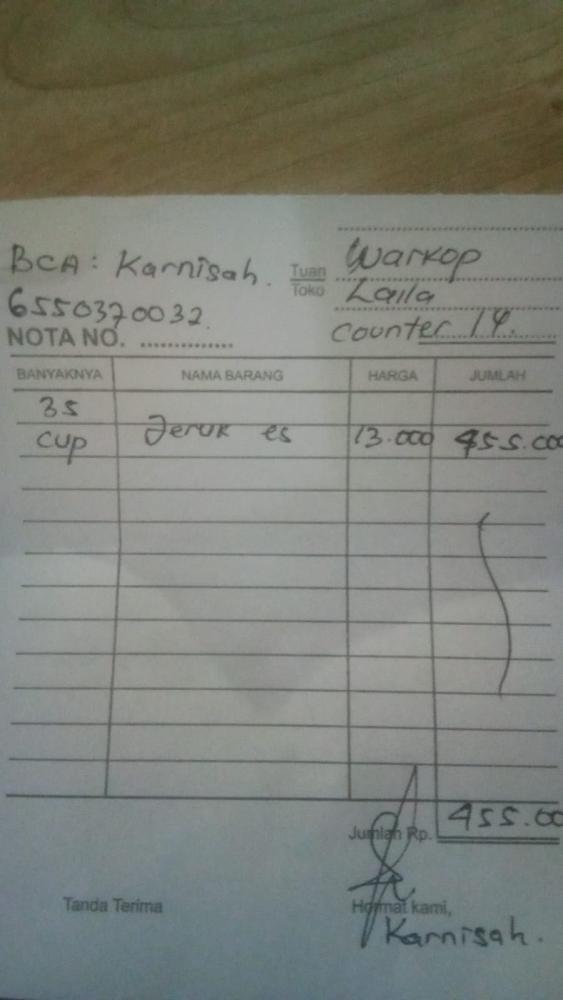 BCA : Karnisah.
6550370032.
Tuan
Toko
Warkop
Laila
Counter 14.
NOTA NO. ..............
BANYAKNYA NAMA BARANG HARGA JUMLAH
35
cup Jeruk es 13.000 455.000
Jumlah Rp. 455.00
Tanda Terima Hormat kami,
Karnisah.